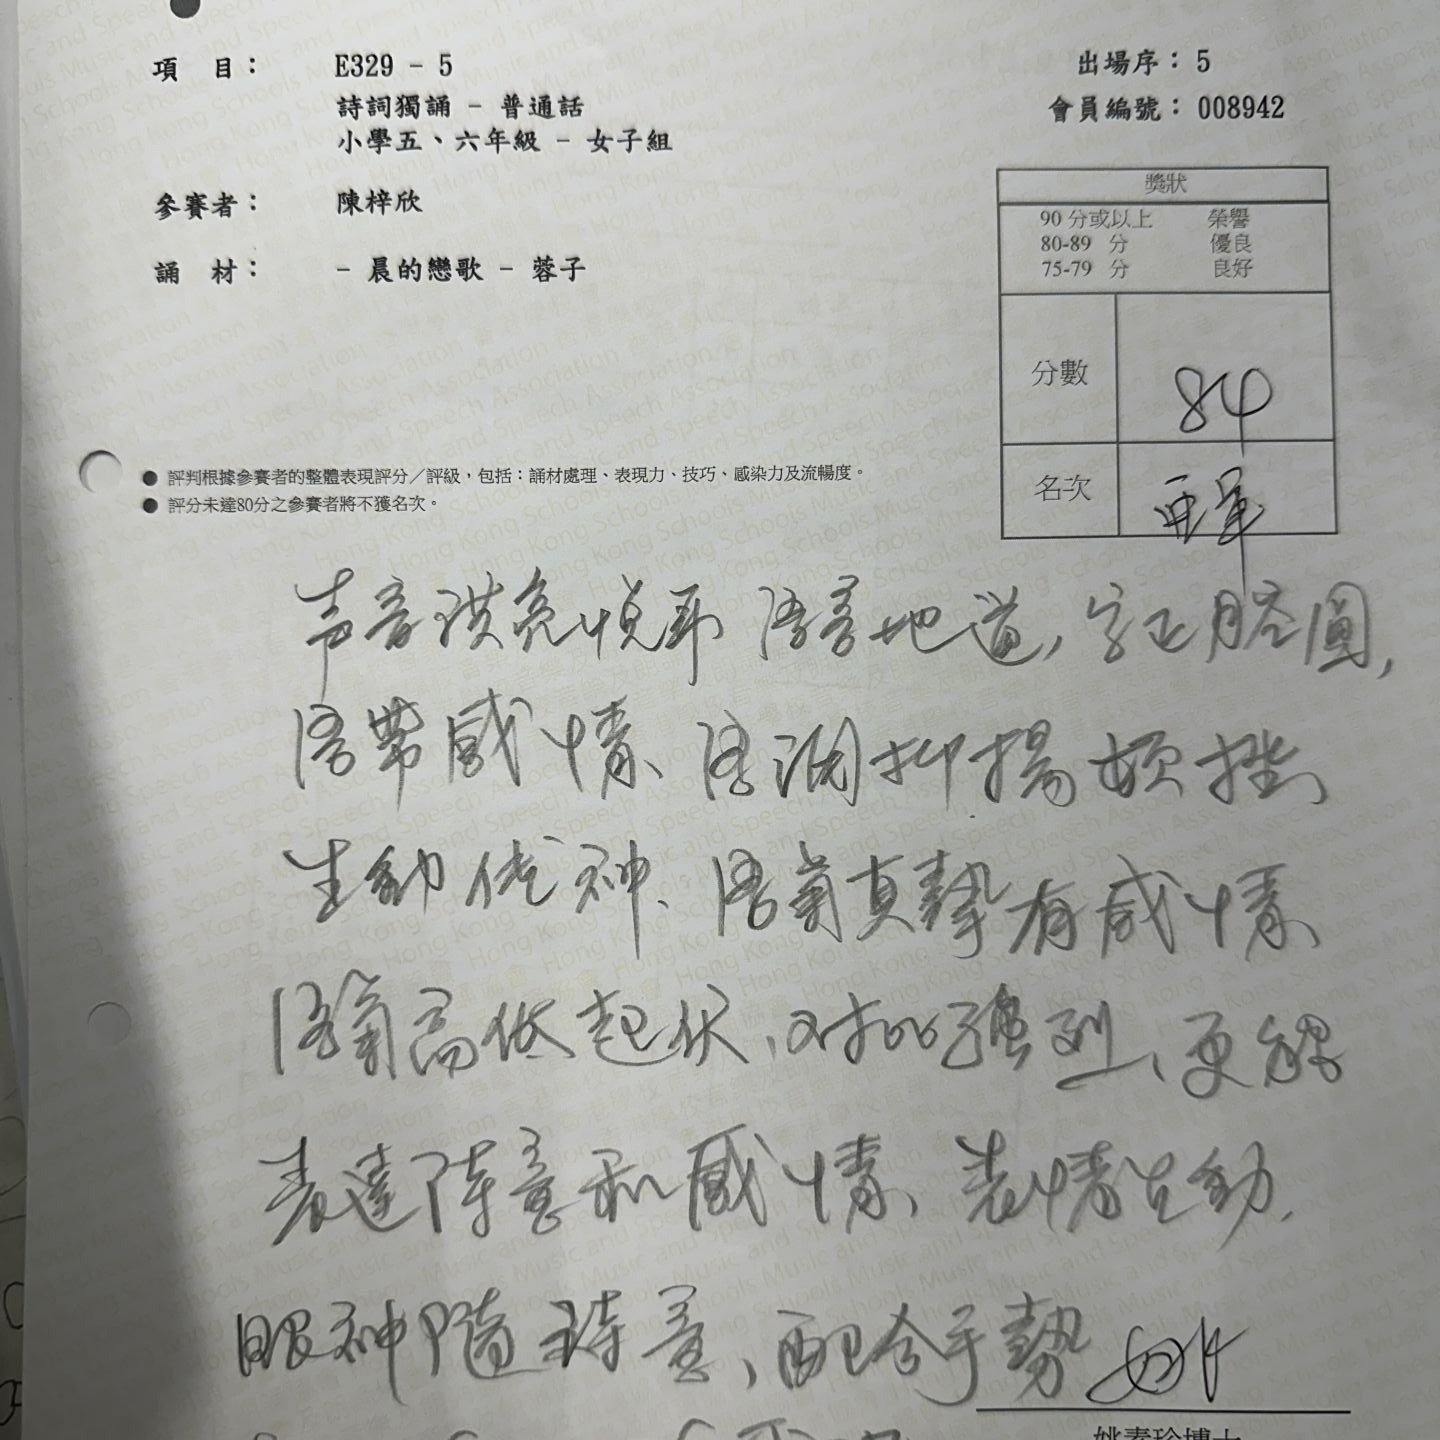 項 目： E329 - 5
出場序： 5
詩詞獨誦 - 普通話
會員編號： 008942
小學五、六年級 - 女子組
參賽者： 陳梓欣
誦 材： - 晨的戀歌 - 蓉子
獎狀
90 分或以上 榮譽
80-89 分 優良
75-79 分 良好
分數 84
名次 亞軍
● 評判根據參賽者的整體表現評分／評級，包括：誦材處理、表現力、技巧、感染力及流暢度。
● 評分未達80分之參賽者將不獲名次。
声音洪亮悅耳 語音地道，字正腔圓，
語帶感情、語調抑揚頓挫、
生動傳神、語氣真摯有感情、
語氣高低起伏，对比強烈、更能
表達詩意和感情、表情生動，
眼神隨詩意，配合手勢
姚素珍博士